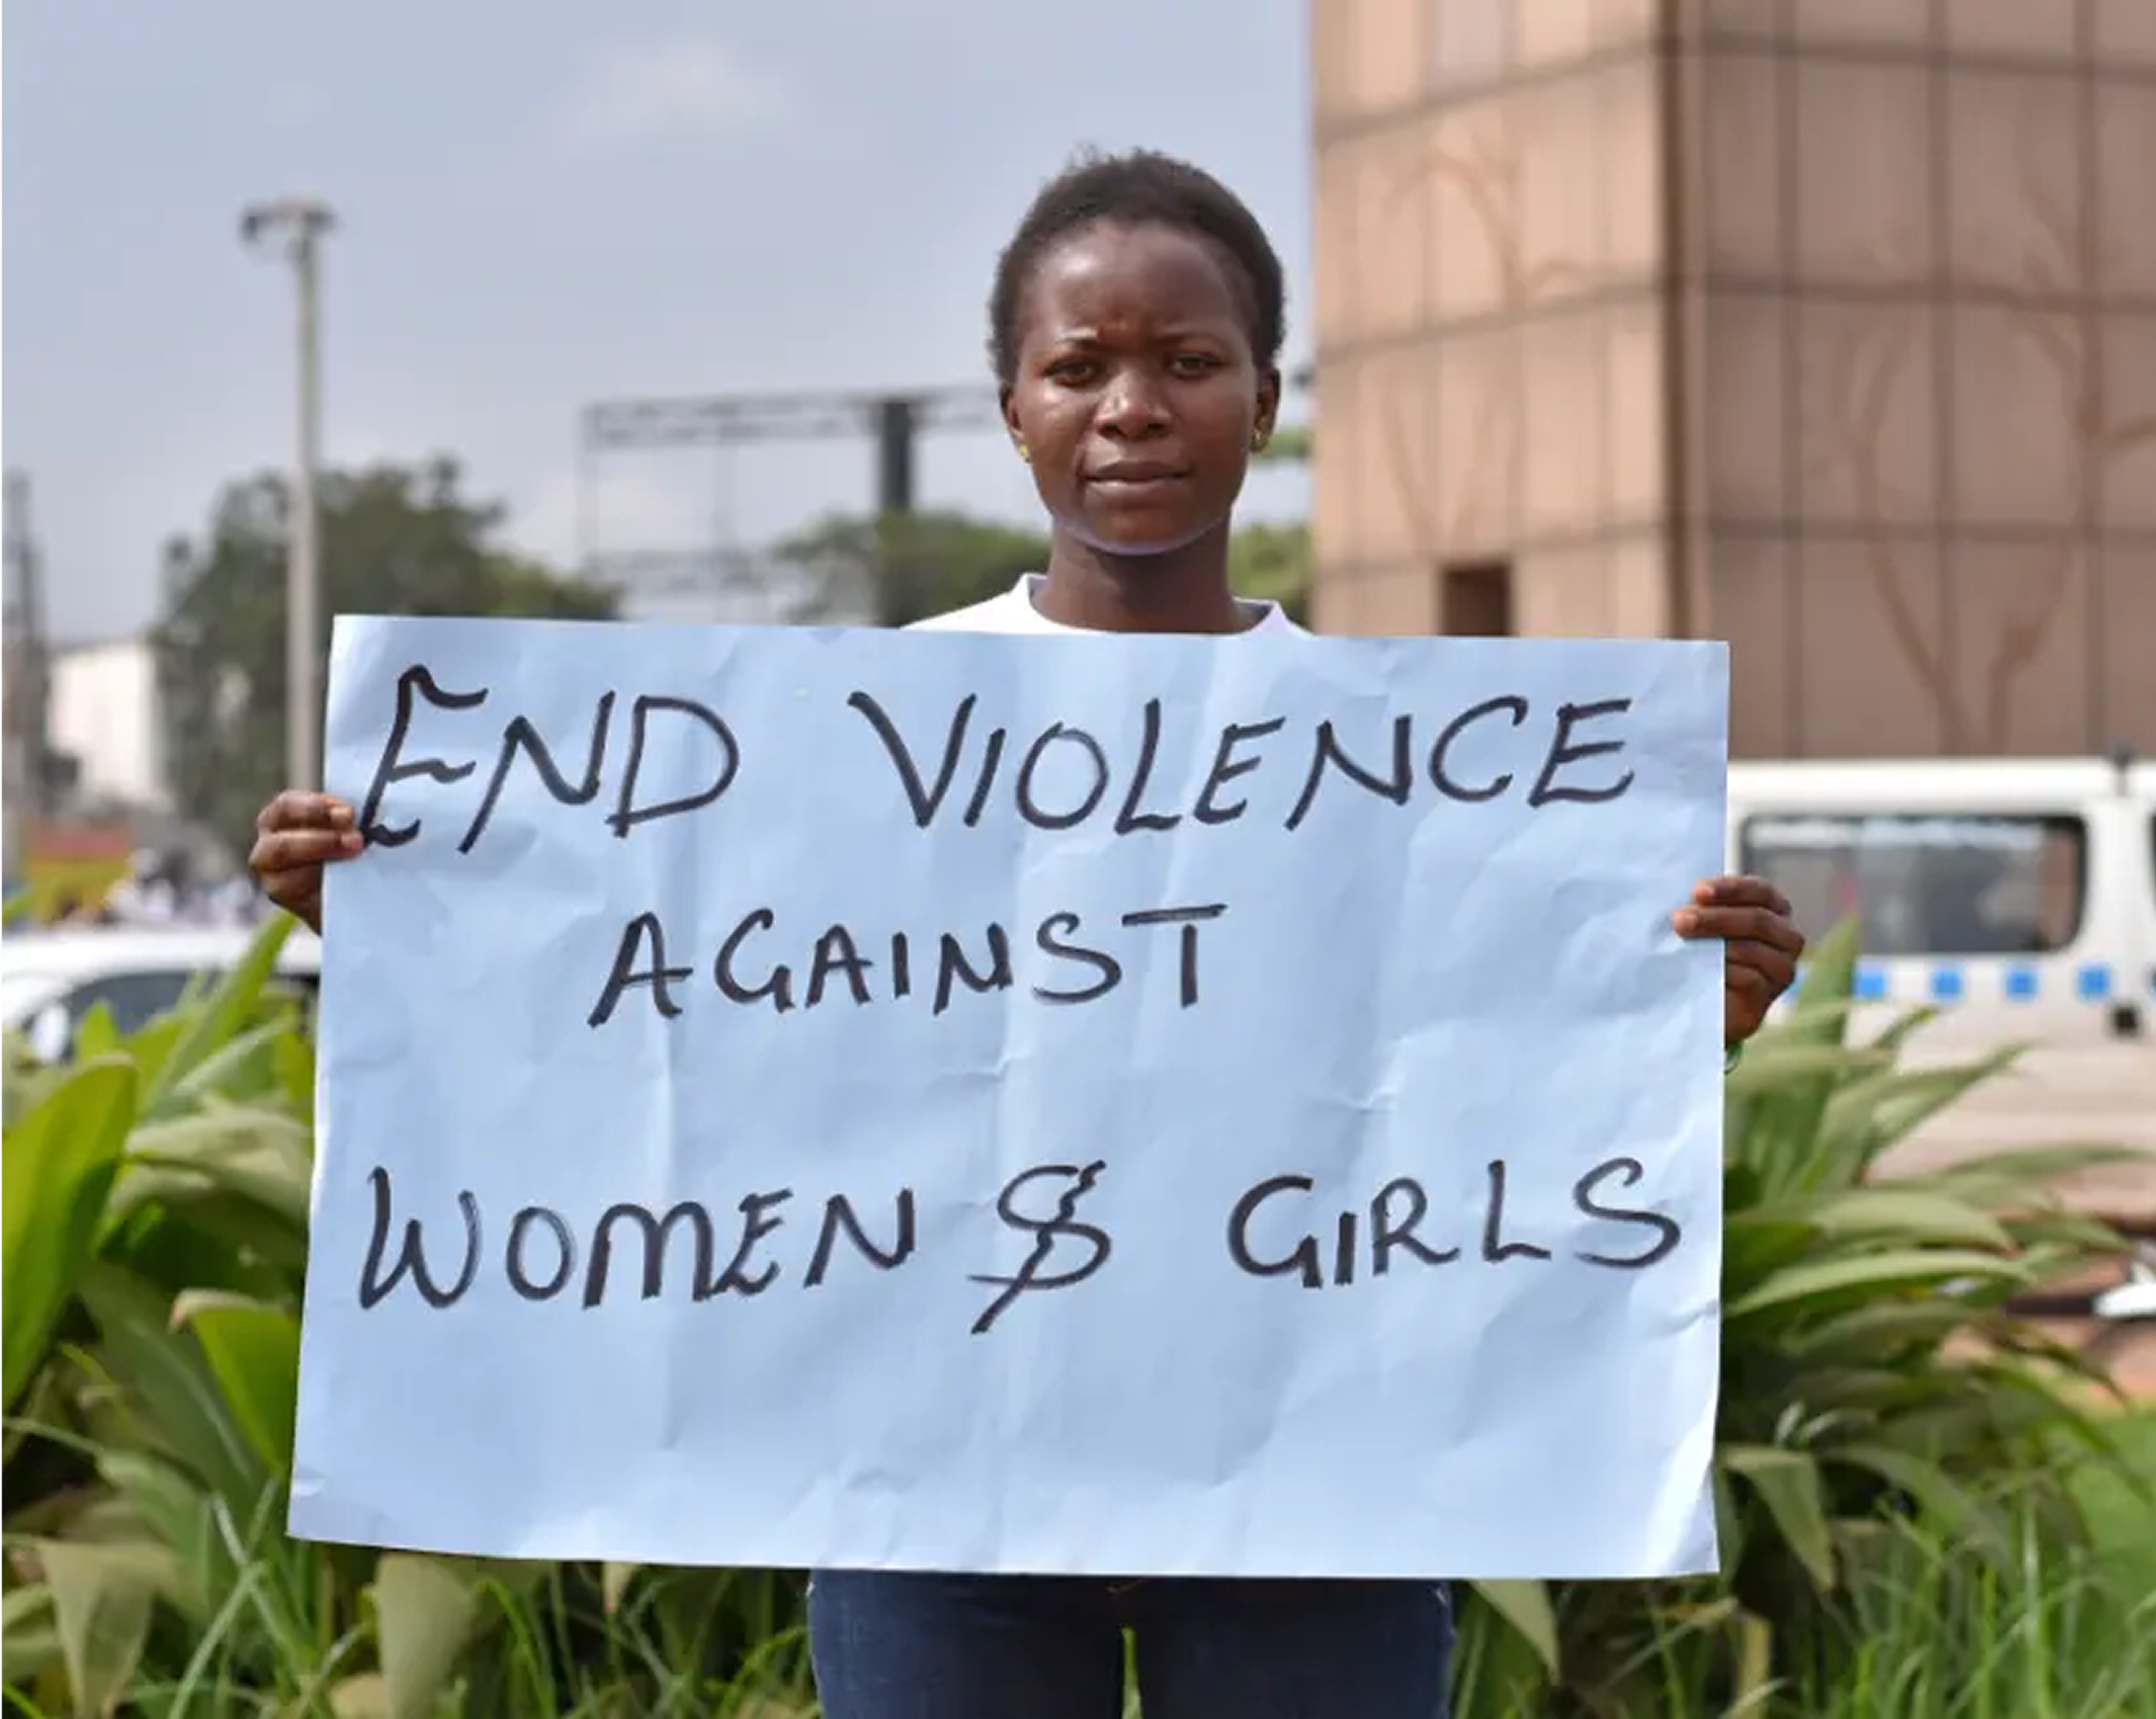 END VIOLENCE
AGAINST
WOMEN & GIRLS